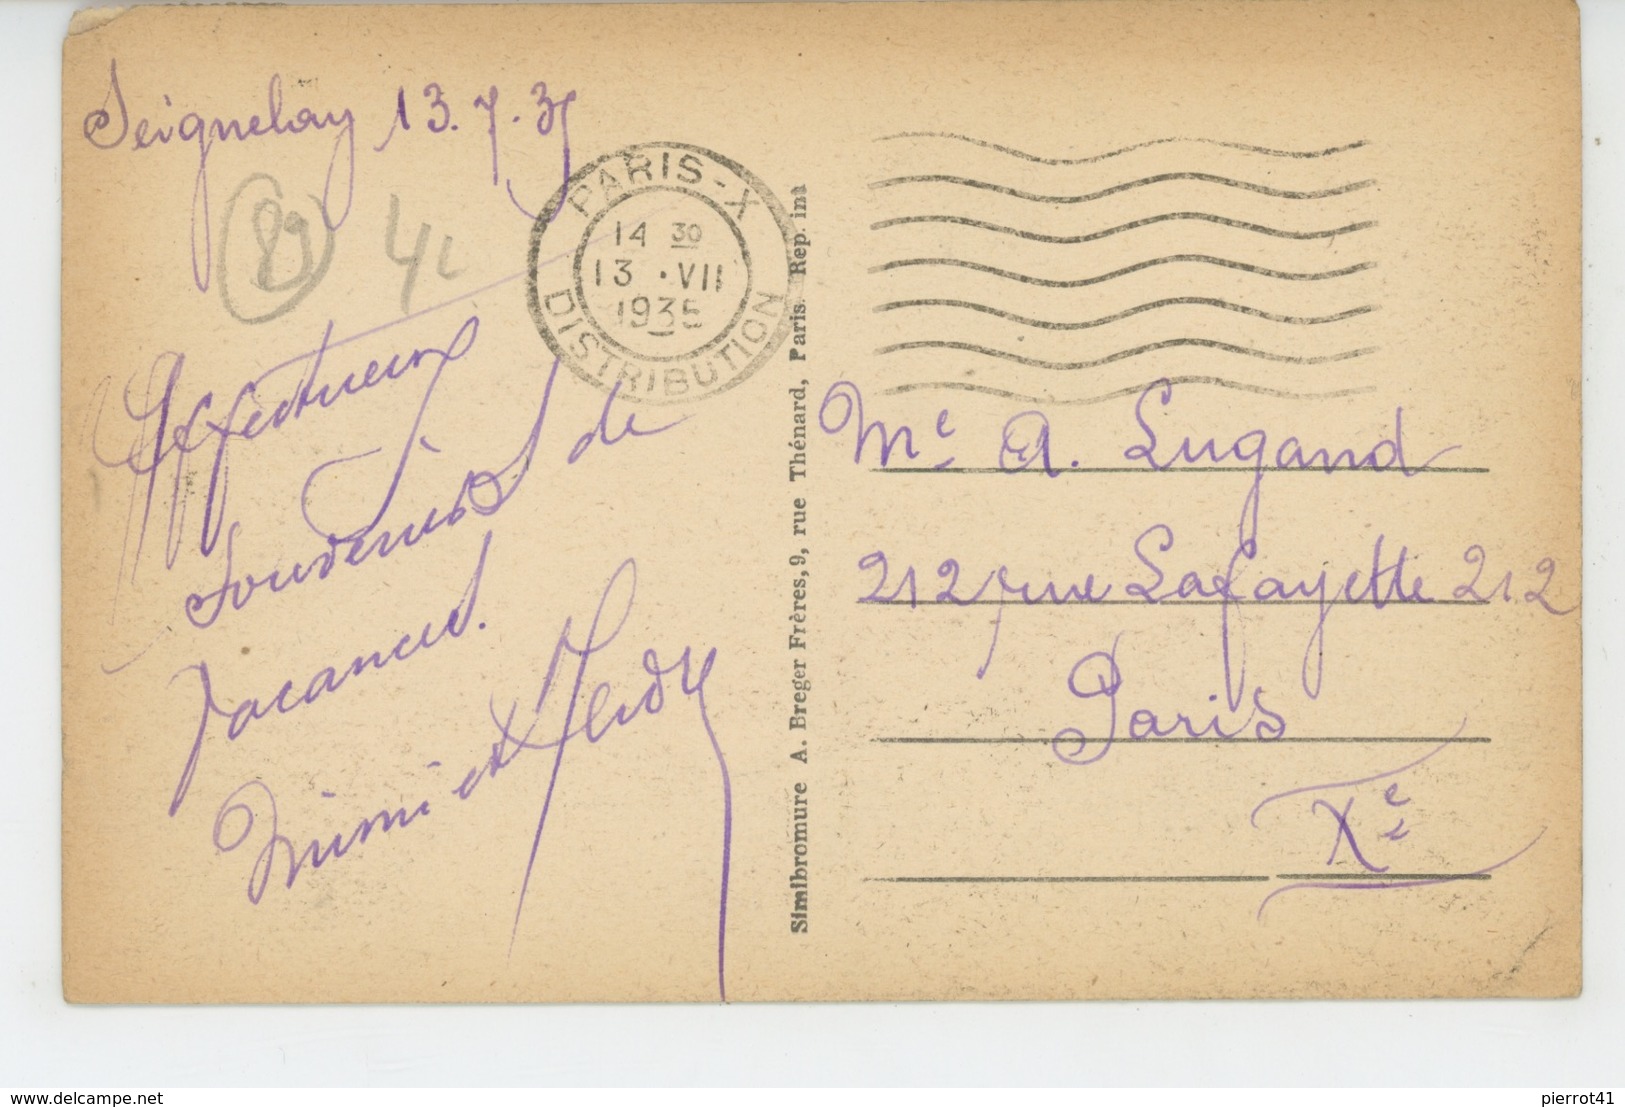 Seignelay 13.7.35
89
PARIS - X
14 30
13 . VII
1935
DISTRIBUTION
Affectueux
Souvenirs de
Vacances.
Mimi et
Simibromure A. Breger Frères, 9, rue Thénard, Paris Rep. int
Me A. Lugand
212 rue Lafayette 212
Paris
Xe
www.delcampe.net
pierrot41